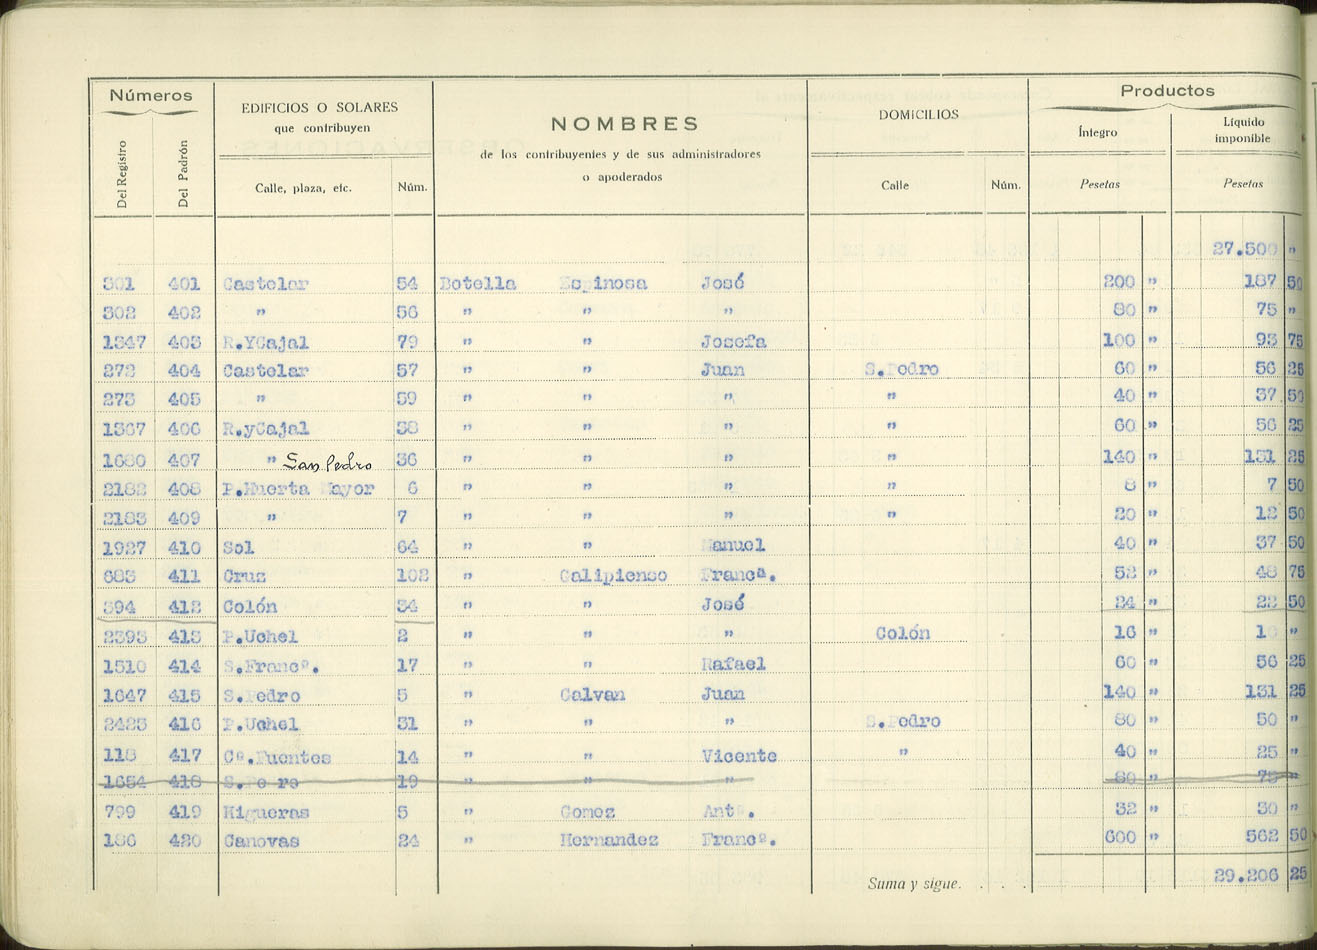 Números
EDIFICIOS O SOLARES
que contribuyen
NOMBRES
de los contribuyentes y de sus administradores
o apoderados
DOMICILIOS
Productos
Íntegro
Líquido
imponible
Del Registro
Del Padrón
Calle, plaza, etc.
Núm.
Calle
Núm.
Pesetas
Pesetas
27.500 "
301 401 Castelar 54 Botella Espinosa José 200 " 187 50
302 402 " 56 " " " 80 " 75 "
1347 403 R.YCajal 79 " " Josefa 100 " 93 75
272 404 Castelar 57 " " Juan S.Pedro 60 " 56 25
273 405 " 59 " " " " 40 " 37 50
1367 406 R.yCajal 38 " " " " 60 " 56 25
1680 407 " San Pedro 36 " " " " 140 " 131 25
2182 408 P.Huerta Mayor 6 " " " " 8 " 7 50
2183 409 " 7 " " " " 20 " 12 50
1927 410 Sol 64 " " Manuel 40 " 37 50
683 411 Cruz 102 " Calipienso Francª. 52 " 48 75
394 412 Colón 34 " " José 24 " 22 50
2393 413 P.Uchel 2 " " " Colón 16 " 1 "
1510 414 S.Francº. 17 " " Rafael 60 " 56 25
1647 415 S.Pedro 5 " Galvan Juan 140 " 131 25
2423 416 P.Uchel 31 " " " S.Pedro 80 " 50 "
118 417 Cº.Fuentes 14 " " Vicente " 40 " 25 "
1654 418 S.Pe ro 19 " " " 80 " 75 "
799 419 Higueras 5 " Gomez Antº. 32 " 30 "
186 420 Canovas 24 " Hernandez Francº. 600 " 562 50
Suma y sigue. . . . 29.206 25